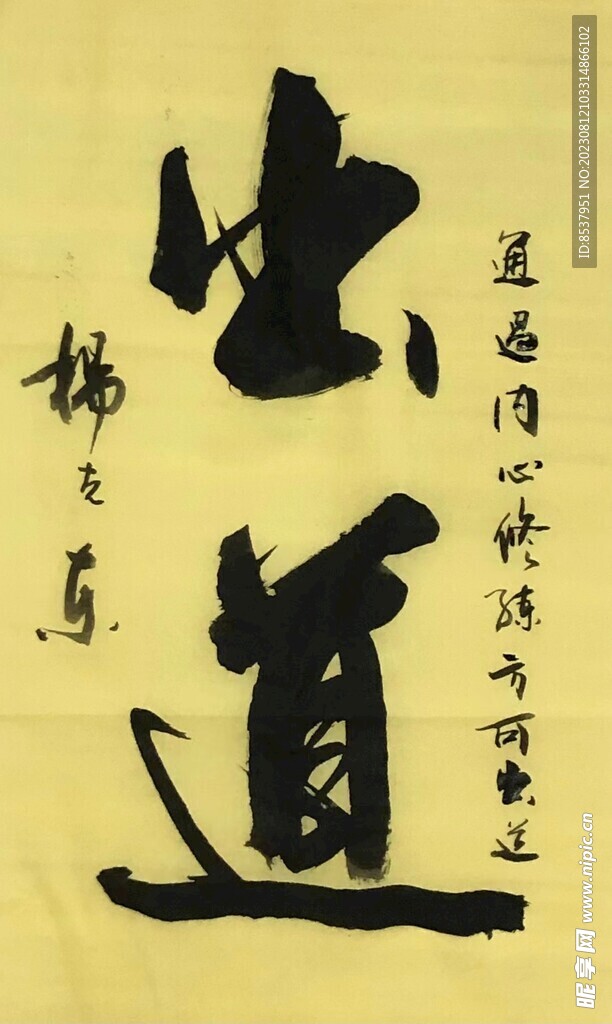 通過内心修練方可出道
出道
楊克東
ID:8537951 NO:20230812103314866102
昵享网 www.nipic.cn